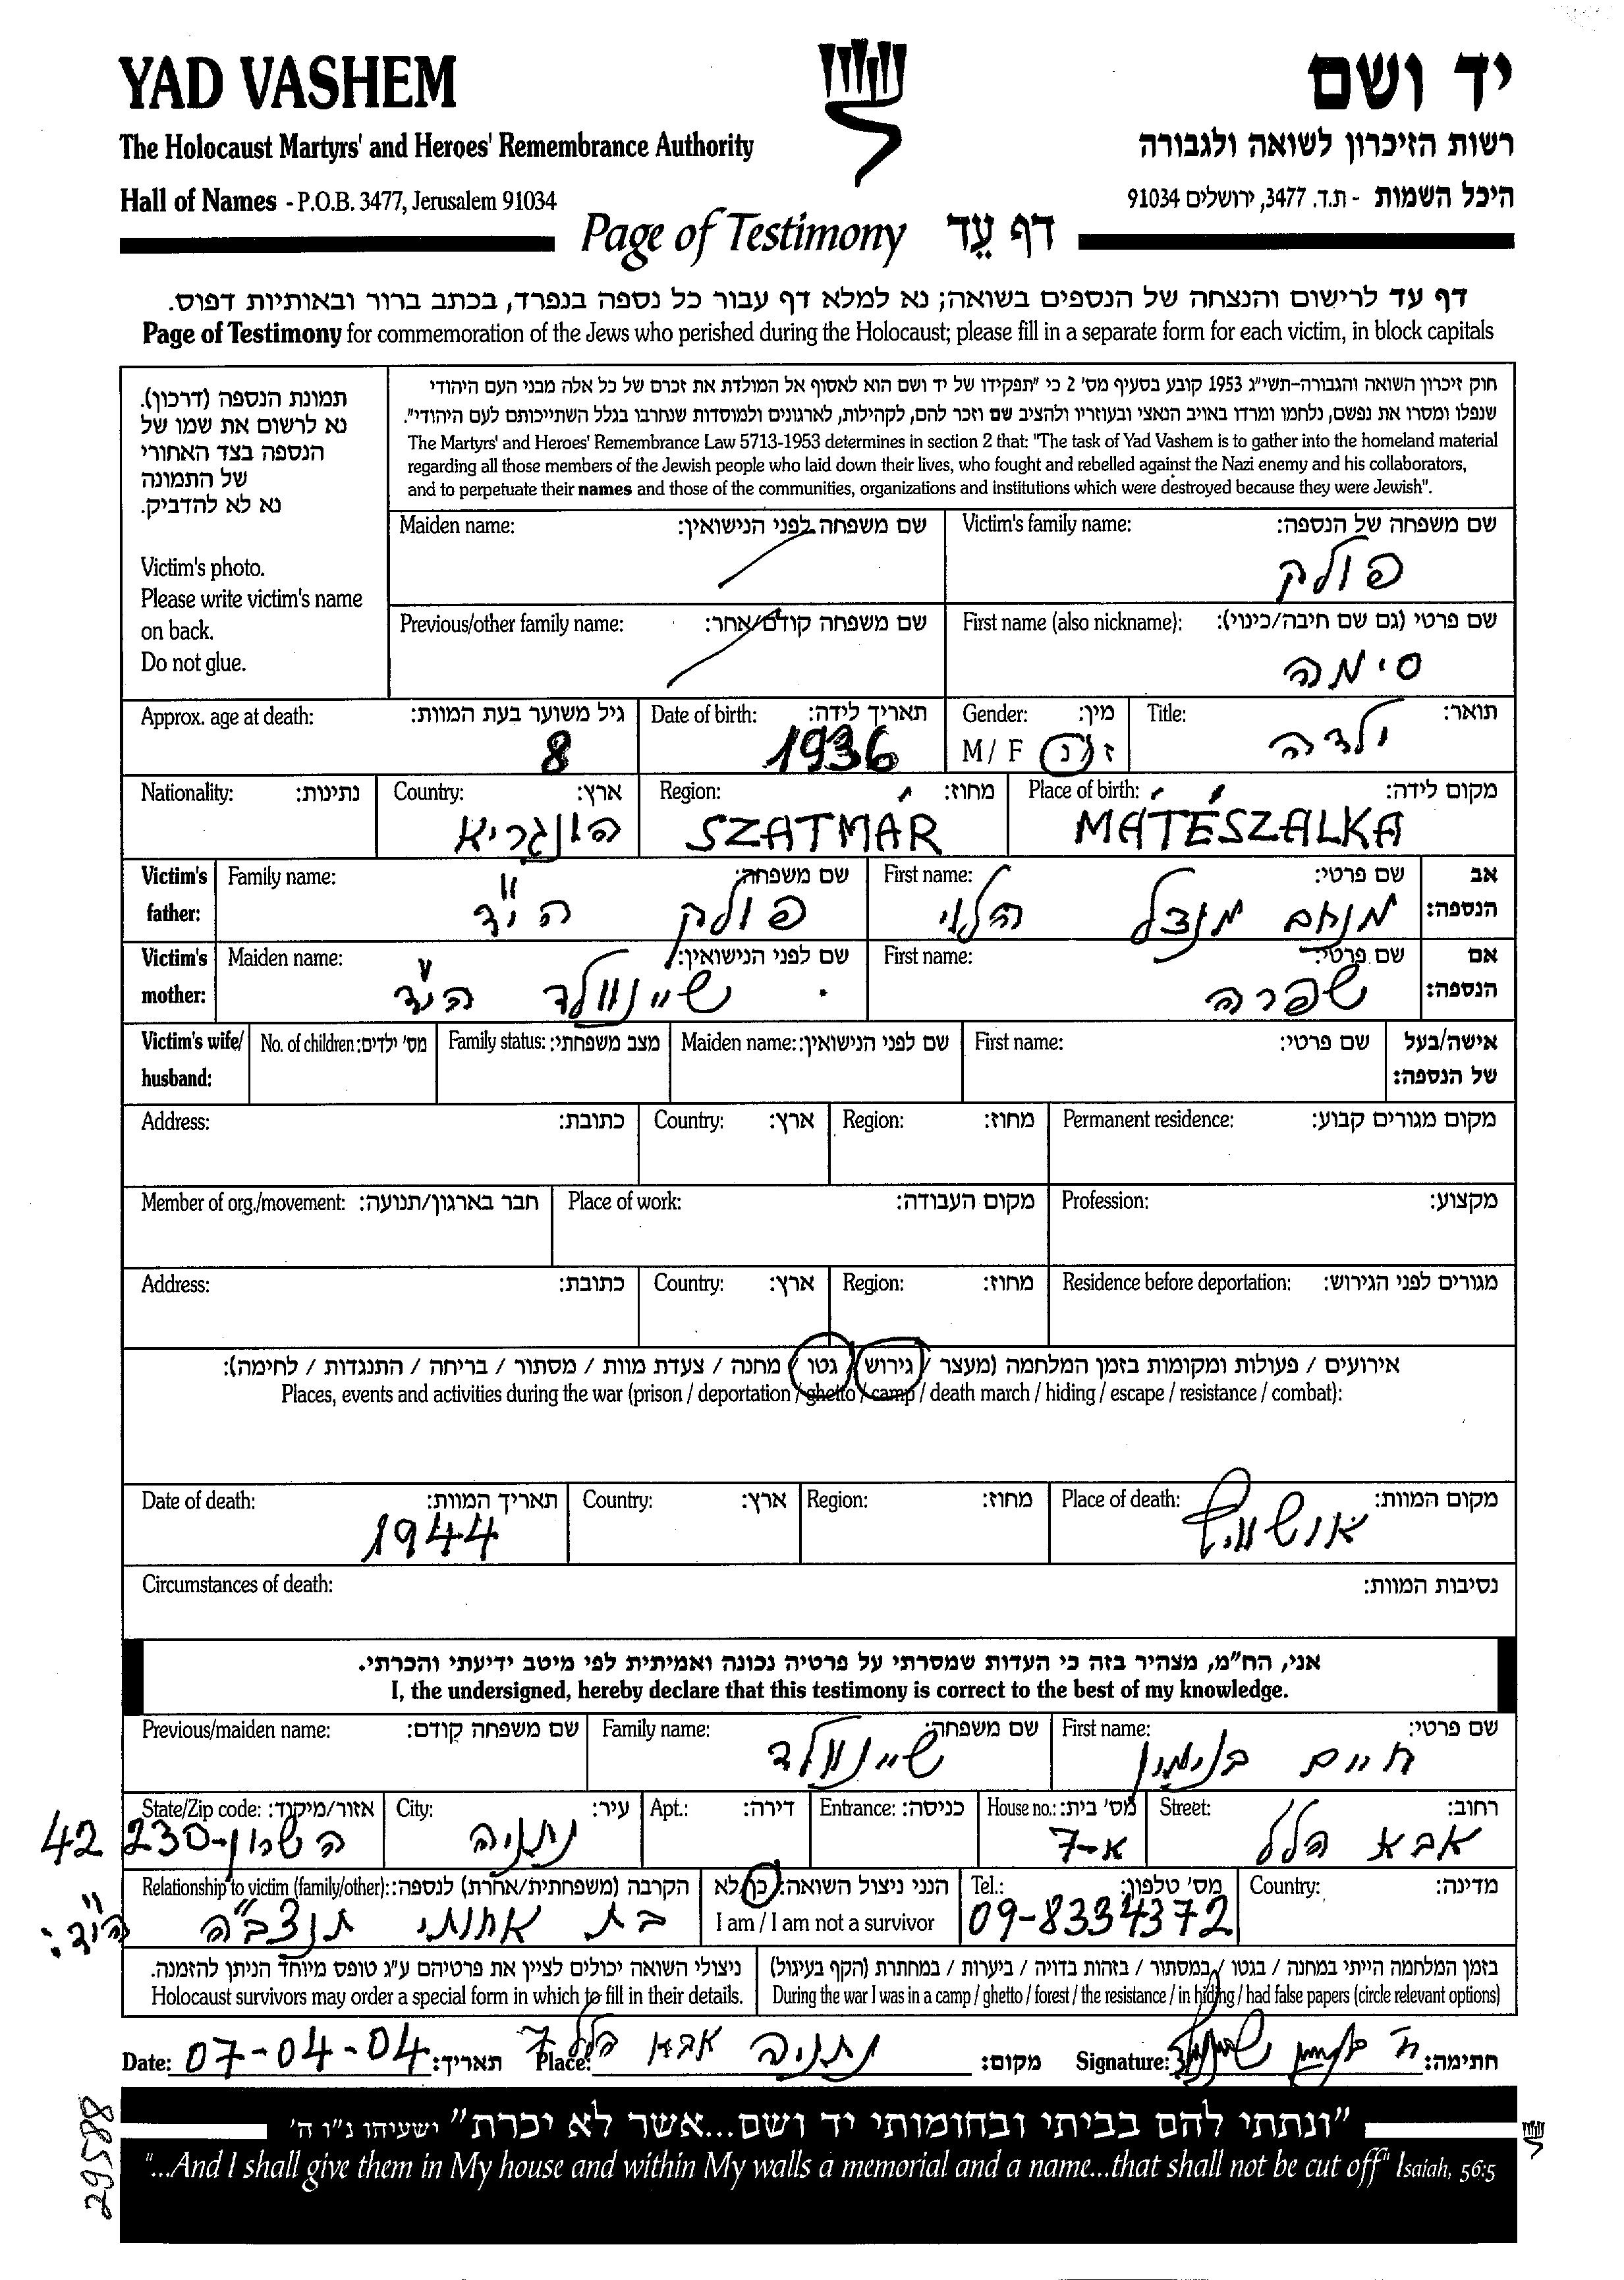 YAD VASHEM
יד ושם
The Holocaust Martyrs' and Heroes' Remembrance Authority
רשות הזיכרון לשואה ולגבורה
Hall of Names - P.O.B. 3477, Jerusalem 91034
היכל השמות - ת.ד. 3477, ירושלים 91034
Page of Testimony דף עֵד
דף עד לרישום והנצחה של הנספים בשואה; נא למלא דף עבור כל נספה בנפרד, בכתב ברור ובאותיות דפוס.
Page of Testimony for commemoration of the Jews who perished during the Holocaust; please fill in a separate form for each victim, in block capitals
תמונת הנספה (דרכון).
נא לרשום את שמו של
הנספה בצד האחורי
של התמונה
נא לא להדביק.
Victim's photo.
Please write victim's name
on back.
Do not glue.
חוק זיכרון השואה והגבורה-תשי"ג 1953 קובע בסעיף מס' 2 כי "תפקידו של יד ושם הוא לאסוף אל המולדת את זכרם של כל אלה מבני העם היהודי
שנפלו ומסרו את נפשם, נלחמו ומרדו באויב הנאצי ובעוזריו ולהציב שם וזכר להם, לקהילות, לארגונים ולמוסדות שנחרבו בגלל השתייכותם לעם היהודי".
The Martyrs' and Heroes' Remembrance Law 5713-1953 determines in section 2 that: "The task of Yad Vashem is to gather into the homeland material
regarding all those members of the Jewish people who laid down their lives, who fought and rebelled against the Nazi enemy and his collaborators,
and to perpetuate their names and those of the communities, organizations and institutions which were destroyed because they were Jewish".
Maiden name: שם משפחה לפני הנישואין: Victim's family name: שם משפחה של הנספה:
פולק
Previous/other family name: שם משפחה קודם/אחר: First name (also nickname): שם פרטי (גם שם חיבה/כינוי):
סימה
Approx. age at death: גיל משוער בעת המוות: Date of birth: תאריך לידה: Gender: מין: Title: תואר:
8 1936 M / F ז / נ ילדה
Nationality: נתינות: Country: ארץ: Region: מחוז: Place of birth: מקום לידה:
הונגריא SZATMÁR MÁTÉSZALKA
Victim's father: Family name: שם משפחה: First name: שם פרטי: אב הנספה:
פולק הי"ד מנחם מנדל הלוי
Victim's mother: Maiden name: שם לפני הנישואין: First name: שם פרטי: אם הנספה:
שיינוולד הי"ד שפרה
Victim's wife/ husband: No. of children: מס' ילדים: Family status: מצב משפחתי: Maiden name: שם לפני הנישואין: First name: שם פרטי: אישה/בעל של הנספה:
Address: כתובת: Country: ארץ: Region: מחוז: Permanent residence: מקום מגורים קבוע:
Member of org./movement: חבר בארגון/תנועה: Place of work: מקום העבודה: Profession: מקצוע:
Address: כתובת: Country: ארץ: Region: מחוז: Residence before deportation: מגורים לפני הגירוש:
אירועים / פעולות ומקומות בזמן המלחמה (מעצר / גירוש / גטו / מחנה / צעדת מוות / מסתור / בריחה / התנגדות / לחימה):
Places, events and activities during the war (prison / deportation / ghetto / camp / death march / hiding / escape / resistance / combat):
Date of death: תאריך המוות: Country: ארץ: Region: מחוז: Place of death: מקום המוות:
1944 אושוויץ
Circumstances of death: נסיבות המוות:
אני, הח"מ, מצהיר בזה כי העדות שמסרתי על פרטיה נכונה ואמיתית לפי מיטב ידיעתי והכרתי.
I, the undersigned, hereby declare that this testimony is correct to the best of my knowledge.
Previous/maiden name: שם משפחה קודם: Family name: שם משפחה: First name: שם פרטי:
שיינוולד חיים בנימין
State/Zip code: אזור/מיקוד: City: עיר: Apt.: דירה: Entrance: כניסה: House no.: מס' בית: Street: רחוב:
42 230 השרון נתניה 7-א אבא הלל
Relationship to victim (family/other): הקרבה (משפחתית/אחרת) לנספה: הנני ניצול השואה: כן/לא Tel.: מס' טלפון: Country: מדינה:
בת אחותי תנצב"ה הי"ד: I am / I am not a survivor 09-8334372
ניצולי השואה יכולים לציין את פרטיהם ע"ג טופס מיוחד הניתן להזמנה. בזמן המלחמה הייתי במחנה / בגטו / במסתור / בזהות בדויה / ביערות / במחתרת (הקף בעיגול)
Holocaust survivors may order a special form in which to fill in their details. During the war I was in a camp / ghetto / forest / the resistance / in hiding / had false papers (circle relevant options)
Date: 07-04-04 תאריך: Place: נתניה אבא הלל 7 מקום: Signature: ח בנימין שיינוולד חתימה:
"ונתתי להם בביתי ובחומותי יד ושם...אשר לא יכרת" ישעיהו נ"ו ה'
"...And I shall give them in My house and within My walls a memorial and a name...that shall not be cut off" Isaiah, 56:5
29588